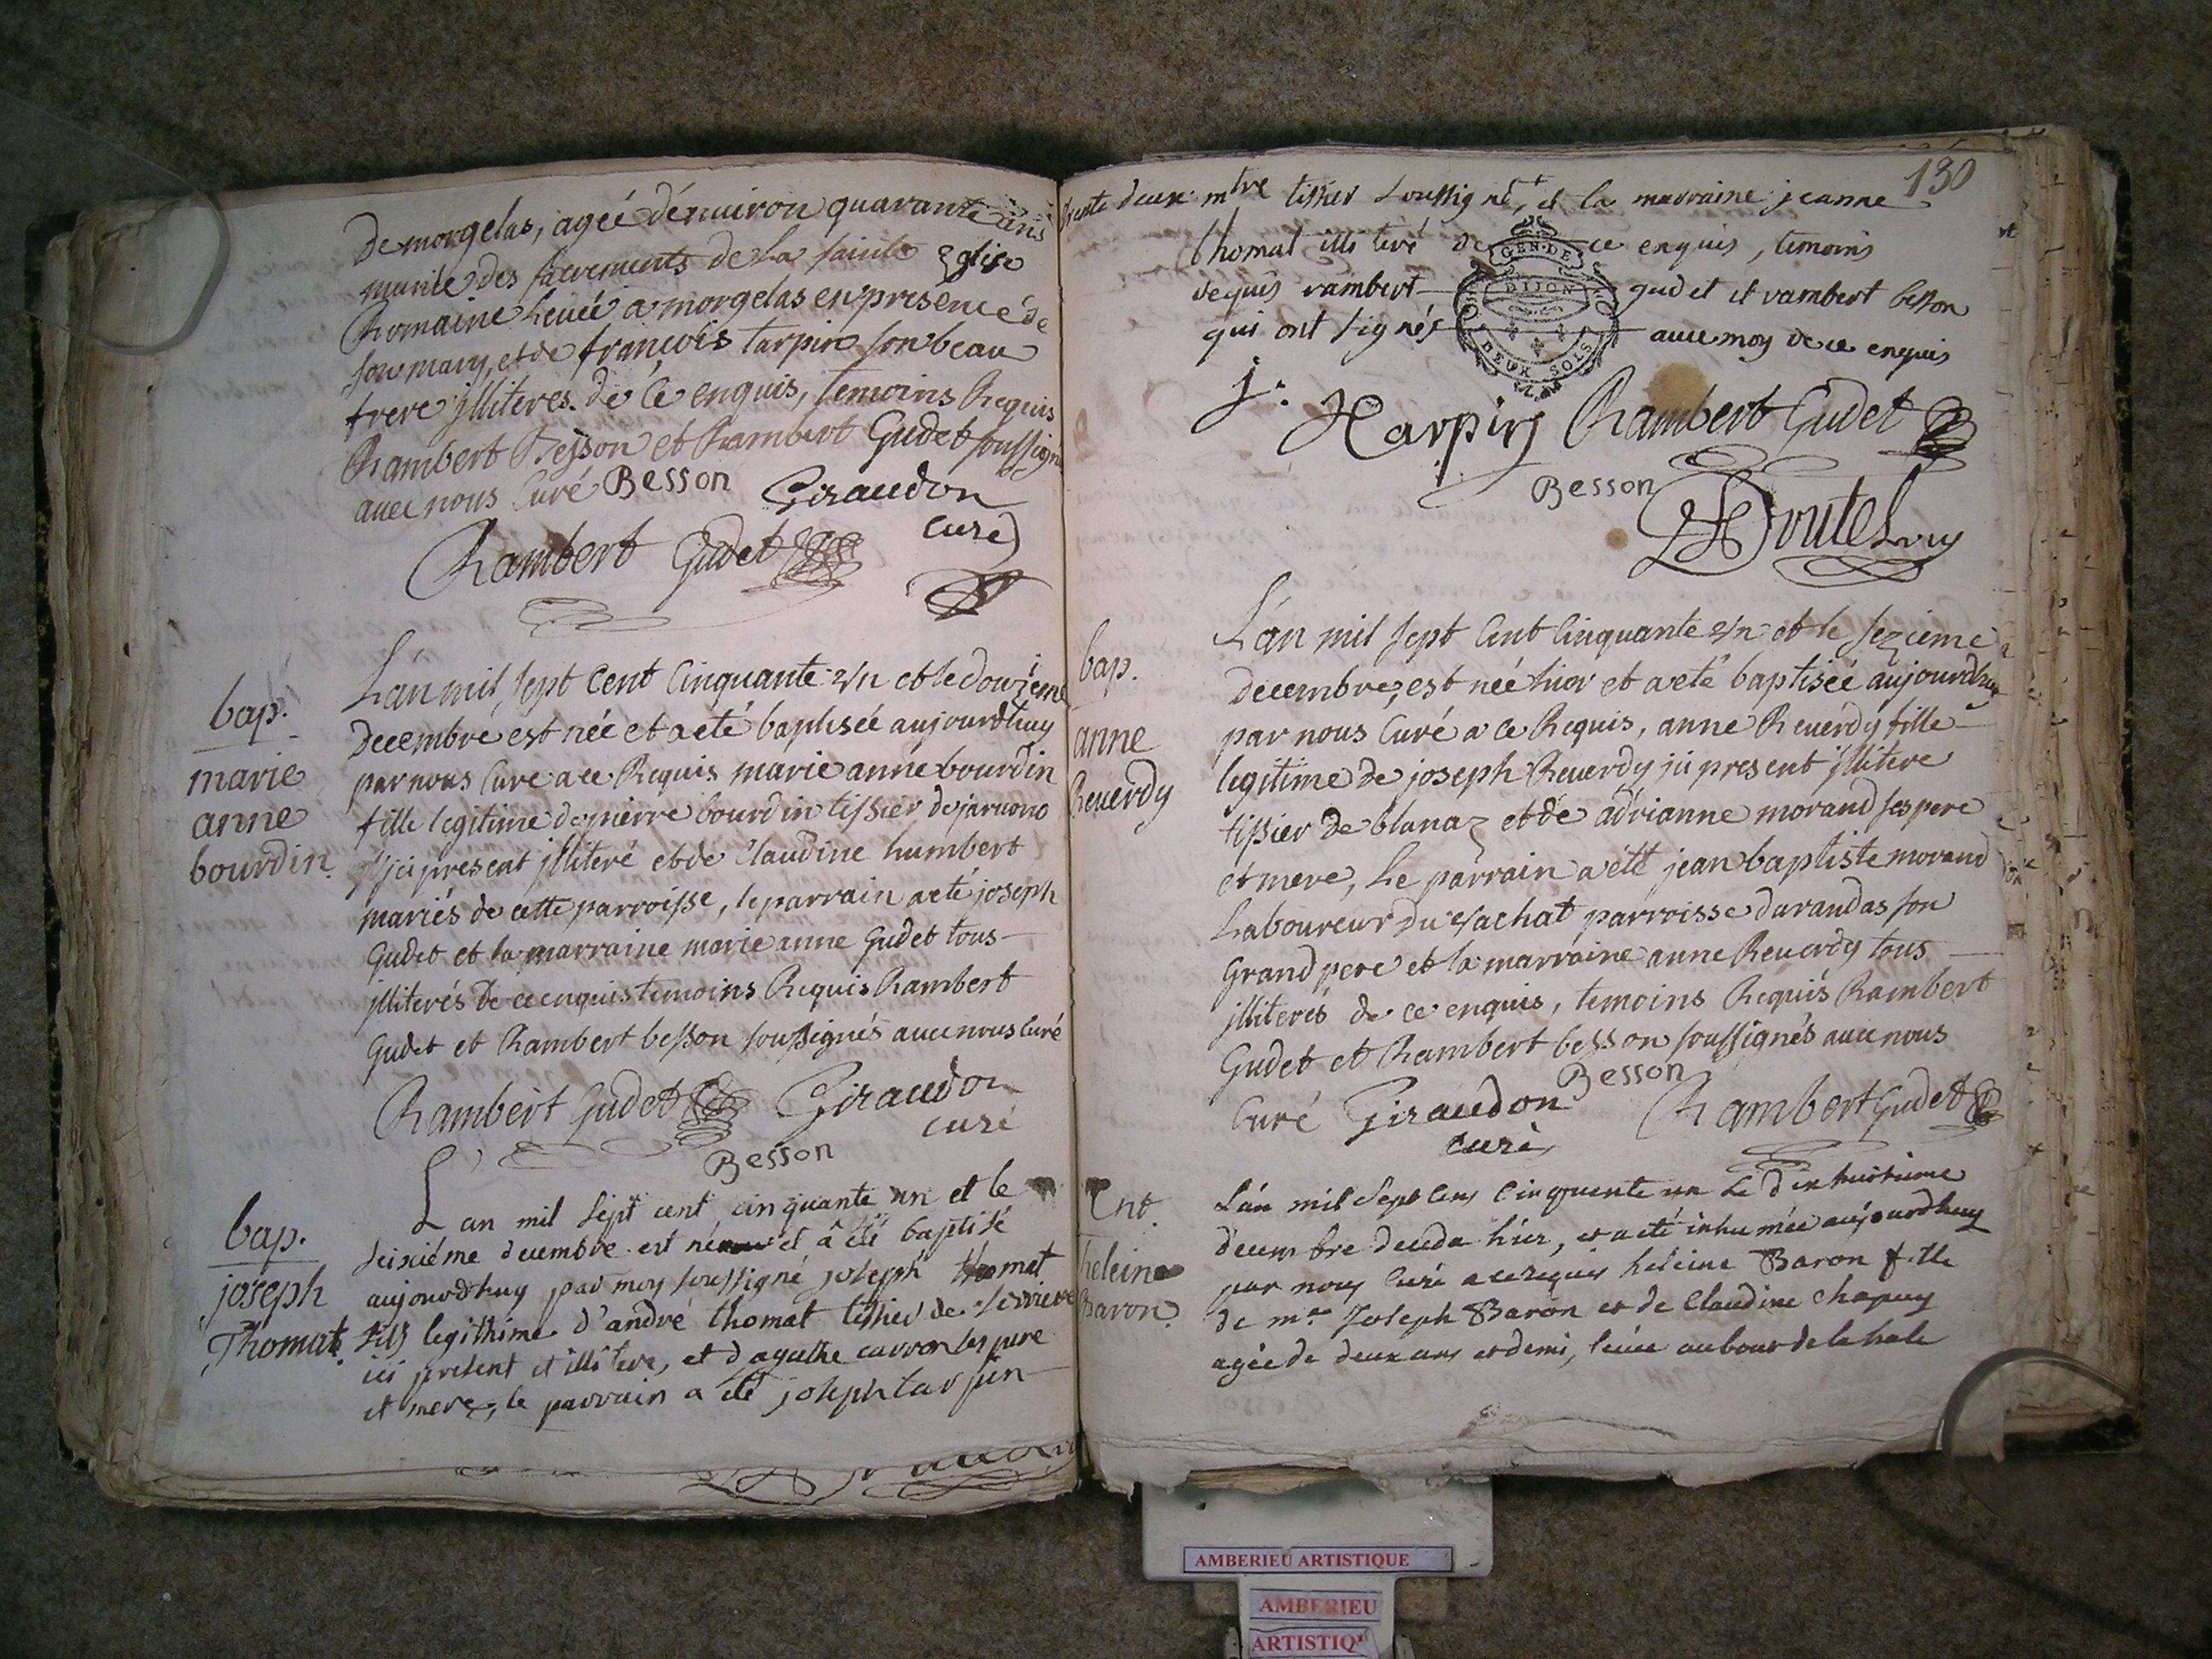 de morgelas, agéé dénuiron quarante ans
munie des sacrements de La sainte Eglise
Romaine Leuéé a morgelas en présence de
son mary, et de françois tarpin son beau
frere jlliteres de ce enquis, temoins Requis
Rambert Besson et Rambert Gudet soussignés
auec nous Curé Besson Giraudon
curé
Rambert Gudet
bap.
marie
anne
bourdin.
L'an mil sept Cent Cinquante un et le douziéme
decembre est néé et a eté baptisée aujourdhuy
par nous Curé a ce Requis marie anne bourdin
fille legitime de pierre bourdin tissier de
jci present jlliteré et de Claudine humbert
mariés de cette parroisse, le parrain a eté joseph
Gudet et la marraine marie anne Gudet tous
jlliterés de ce enquis temoins Requis Rambert
Gudet et Rambert besson soussignés auec nous Curé
Rambert Gudet Giraudon
curé
Besson
bap.
joseph
Thomat.
L'an mil sept cent cinquante un et le
seixiéme decembre est né et â eté baptisé
aujourdhuy par moy soussigné joseph thomat
fils legithime d'andré thomat tissier de
ici present et illitere, et d'agathe carron ses pere
et mere, le parrain a eté joseph tarpin
130
mtre tissier soussigné, et la marraine jeanne
thomat illiteré de ce enquis, temoins
requis rambert gudet et rambert besson
qui ont signés auec moy de ce enquis
GEN. DE
DIJON
DEUX SOLS
J. Tarpin Rambert Gudet
Besson
bap.
anne
Reuerdy
L'an mil sept Cent Cinquante un et le seziéme
decembre, est néé hier et a eté baptiséé aujourdhuy
par nous Curé a ce Requis, anne Reuerdy fille
legitime de joseph Reuerdy jci present jllitere
tissier de blanaz et de adrianne morand ses pere
et mere, Le parrain a eté jean baptiste morand
Laboureur du vachat parroisse darandas son
Grand pere et la marraine anne Reuerdy tous
jlliterés de ce enquis, temoins Requis Rambert
Gudet et Rambert besson soussignés auec nous
Besson
Curé Giraudon Rambert Gudet
curé
Ent.
heleine
Baron.
L'an mil sept cens cinquente un Le dix huitieme
decembre deceda hier, et a eté inhumée aujourdhuy
par nous Curé a ce requis heleine Baron fille
de mre Joseph Baron et de Claudine Chapuy
agée de deux ans et demi, leuée au bour de la hale
AMBERIEU ARTISTIQUE
AMBERIEU
ARTISTIQ